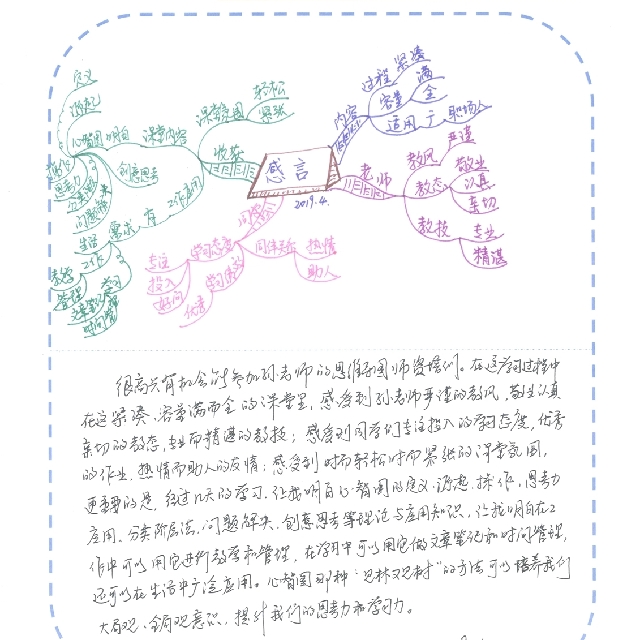 定义
源起
心智图
明白
课堂内容
课堂氛围
轻松
紧张
收获
创意思考
思考力
问题解决
工作应用
需求
有
生活
工作
学习
教学
管理
文章笔记
时间管理
感言
2019.4.
内容
过程
紧凑
容量
满
全
适用
于
职场人
老师
教风
严谨
教态
敬业
认真
亲切
教技
专业
精湛
同学
学习态度
专注
投入
好问
优秀
同伴关系
热情
助人
很高兴有机会能参加孙老师的思维导图师资培训。在这学习过程中
在这紧凑、容量满而全的课堂里,感受到孙老师严谨的教风,敬业认真
亲切的教态,专业而精湛的教技;感受到同学们专注投入的学习态度,优秀
的作业,热情而助人的友情;感受到时而轻松时而紧张的课堂氛围。
更重要的是,经过几天的学习,让我明白心智图的定义、源起、操作、思考力
应用、分类阶层法、问题解决、创意思考等理论与应用知识,让我明白在工
作中可以用它进行教学和管理,在学习中可以用它做文章笔记和时间管理,
还可以在生活中广泛应用。心智图那种“见林又见树”的方法可以培养我们
大局观、全局观意识,提升我们的思考力和学习力。